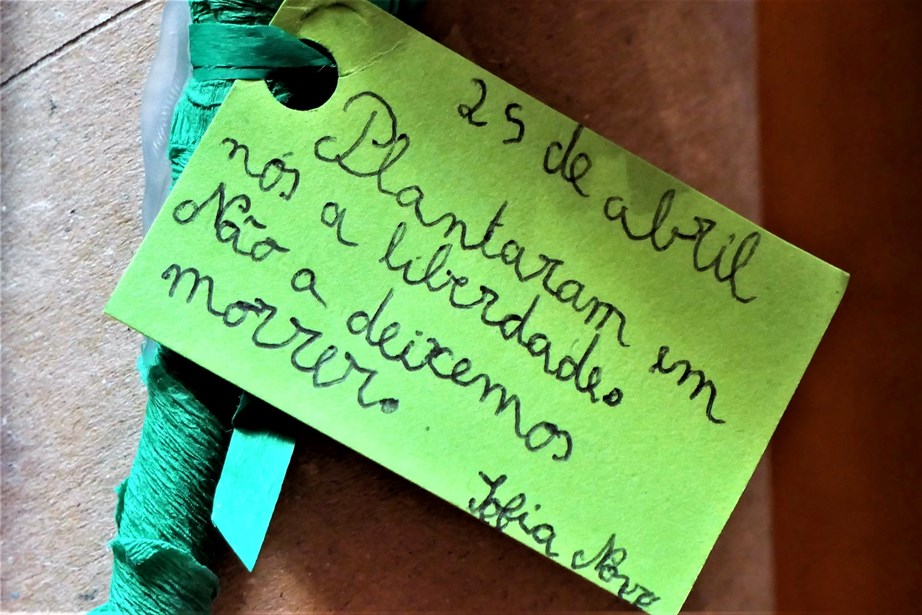 25 de abril
Plantaram em
nós a liberdade.
Não a deixemos
morrer.
Sofia Novo